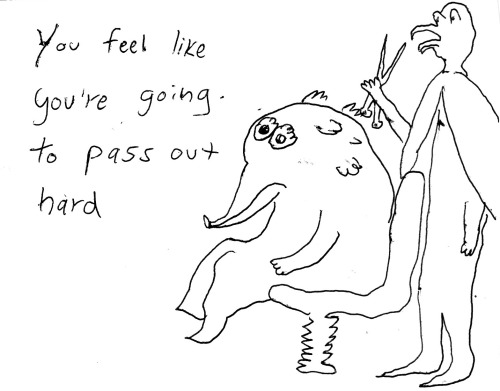 You feel like
you're going.
to pass out
hard